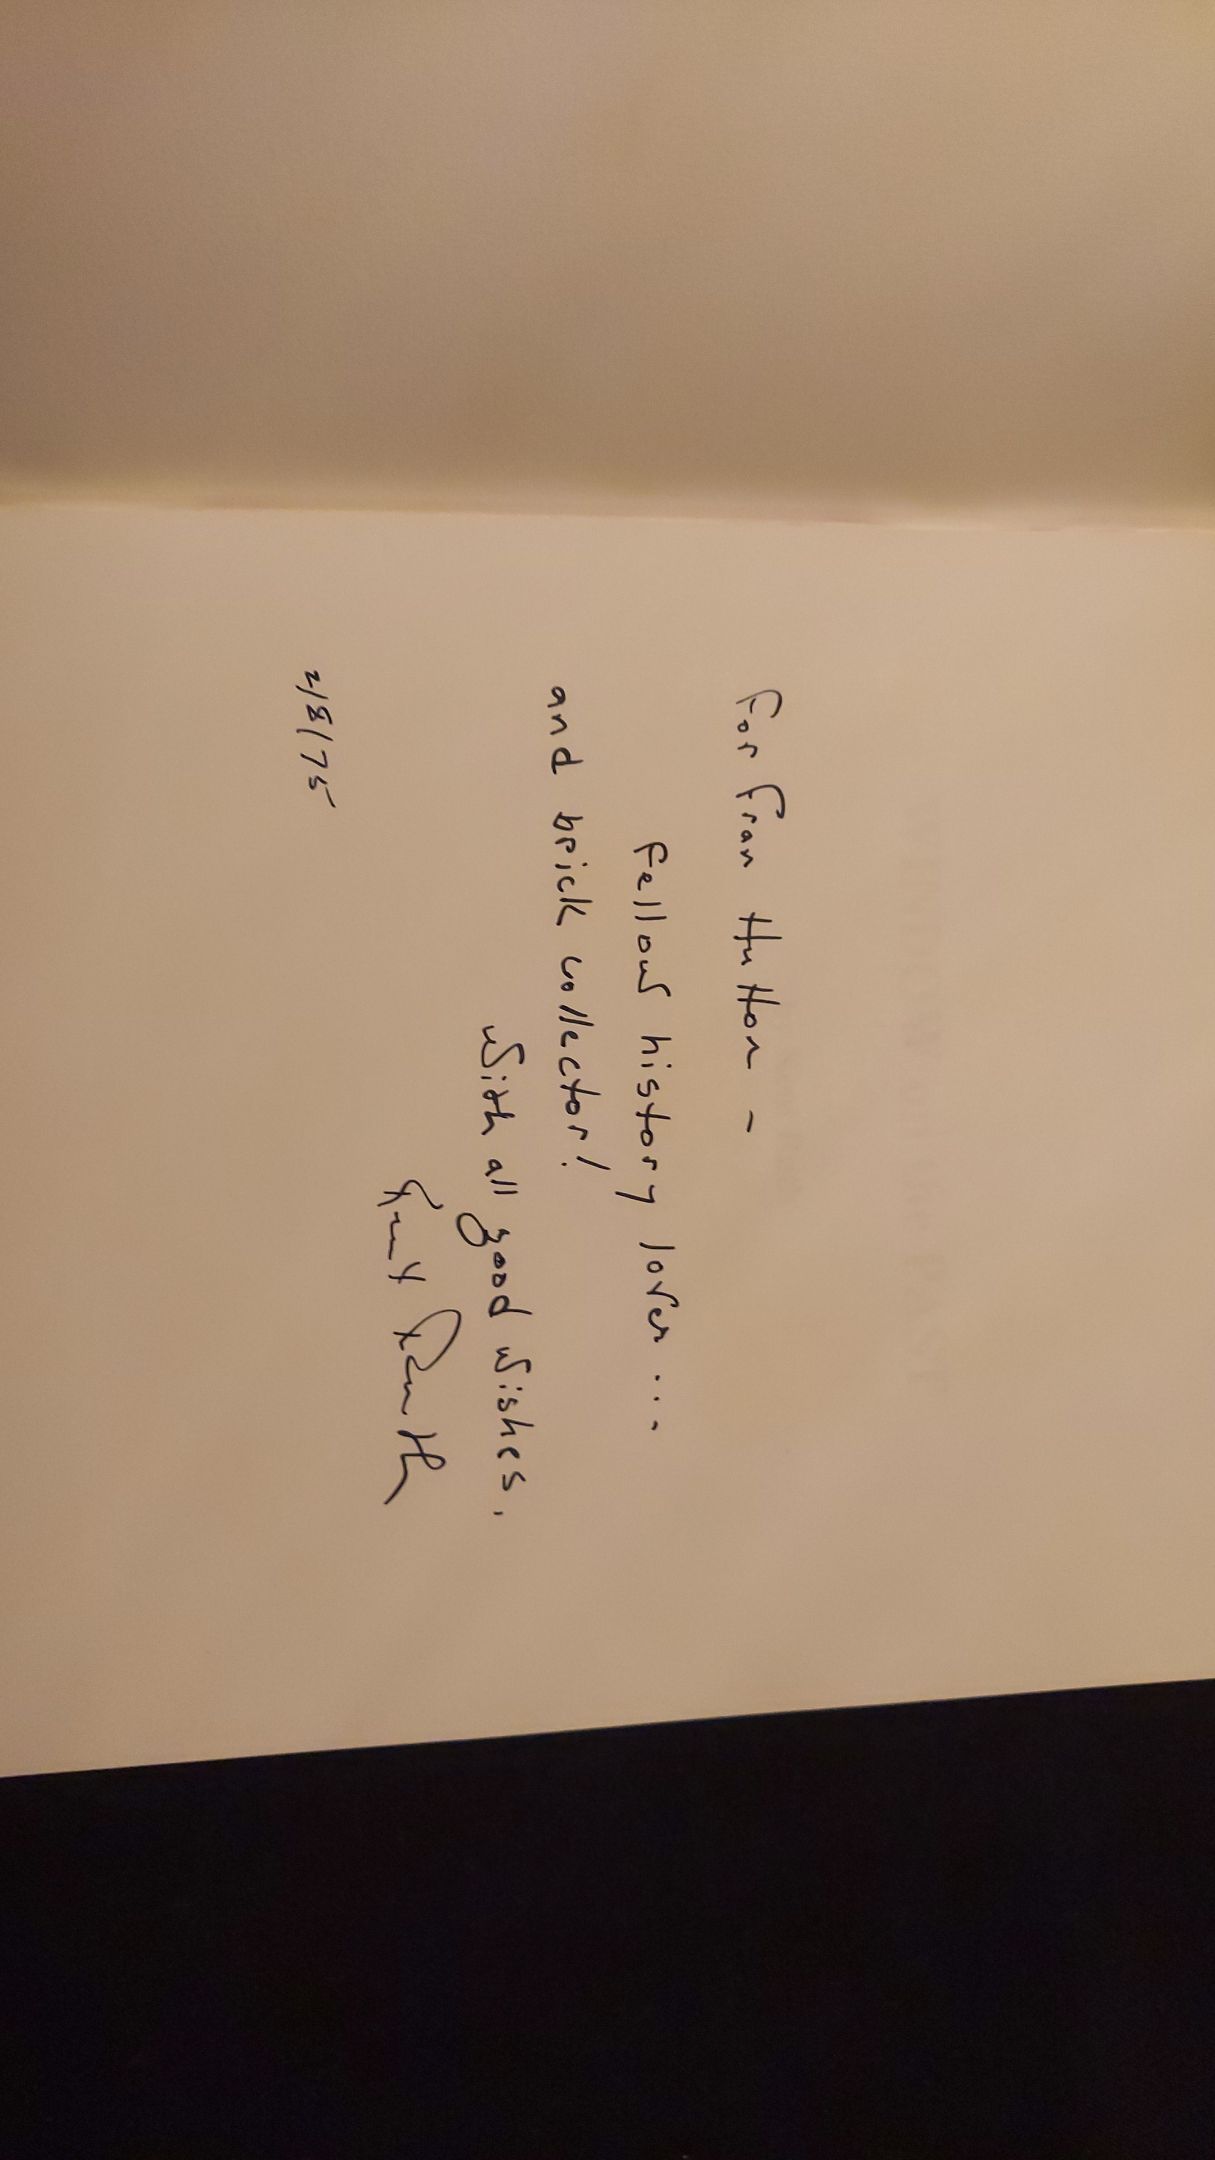 For Fran Hutton -
Fellow history lover...
and brick collector!
With all good wishes,
2/8/75